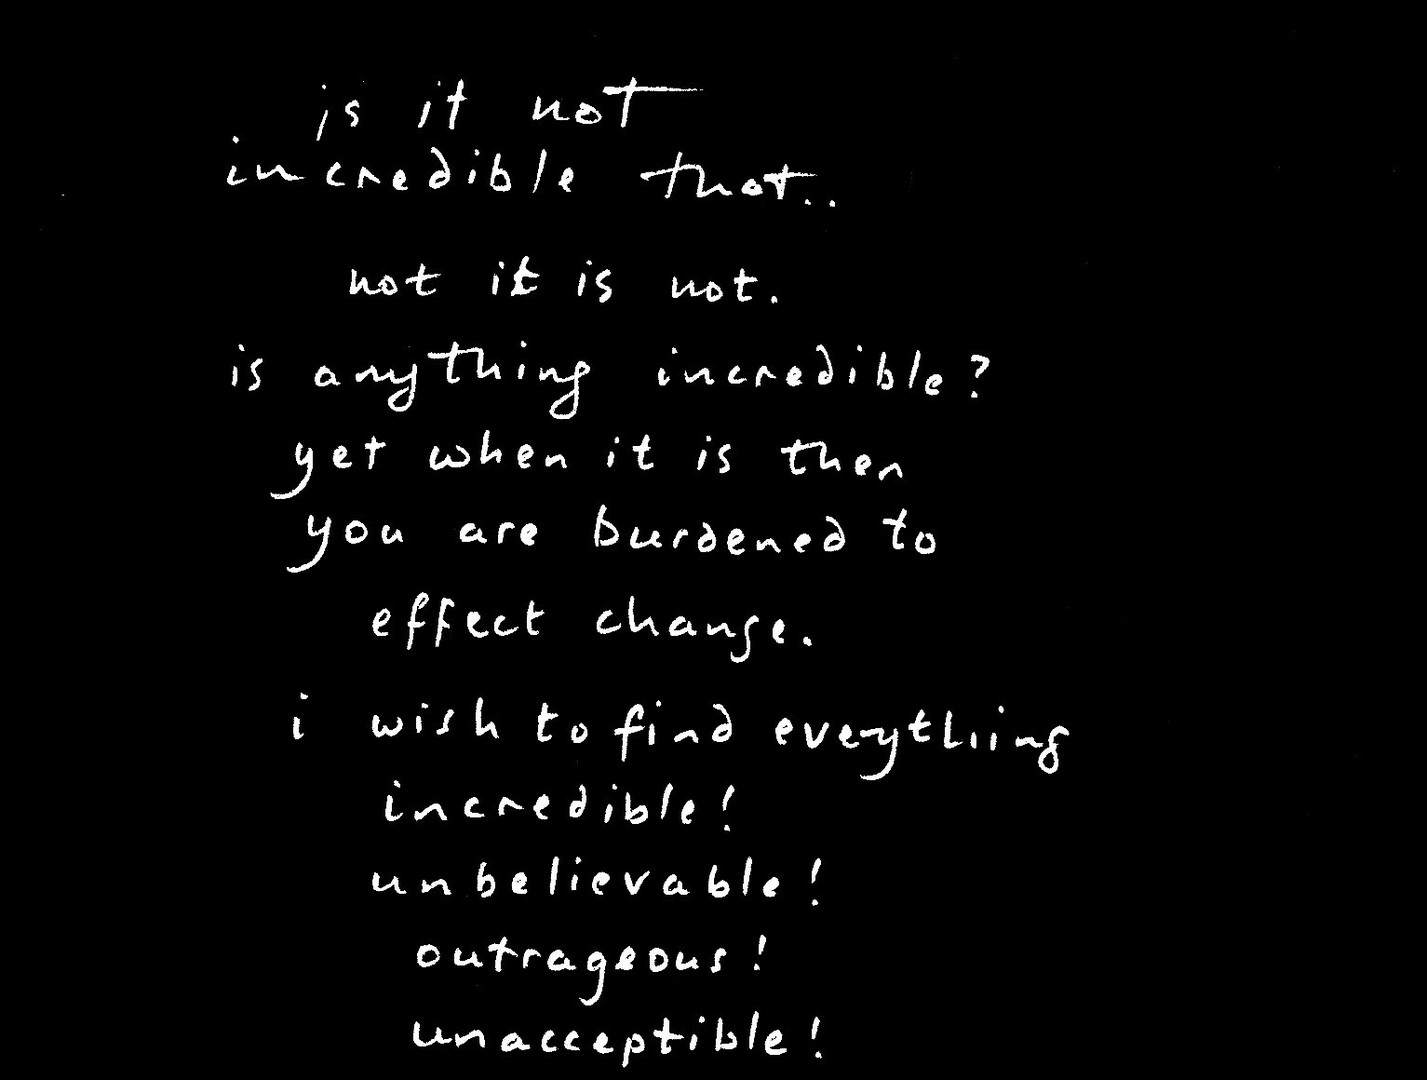 is it not
incredible that..
not it is not.
is anything incredible?
yet when it is then
you are burdened to
effect change.
i wish to find everything
incredible!
unbelievable!
outrageous!
unacceptible!